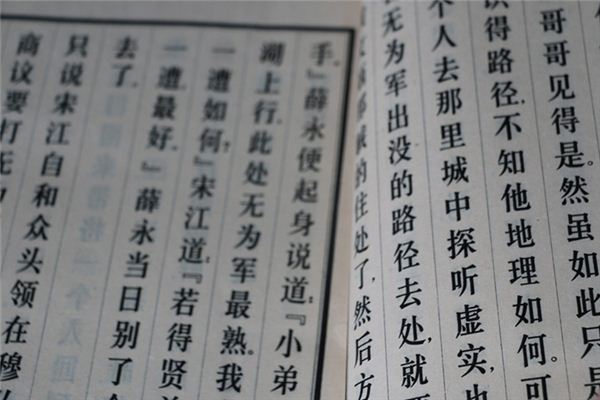 哥哥见得是。然虽如此，只是
识得路径，不知他地理如何。可
个人去那里城中探听虚实，
无为军出没的路径去处，就要
贼的住处了，然后方
手。』薛永便起身说道：『小弟
湖上行，此处无为军最熟。我
一遭如何？』宋江道：『若得贤
一遭，最好。』薛永当日别了
去了。
只说宋江自和众头领在穆
商议要打无